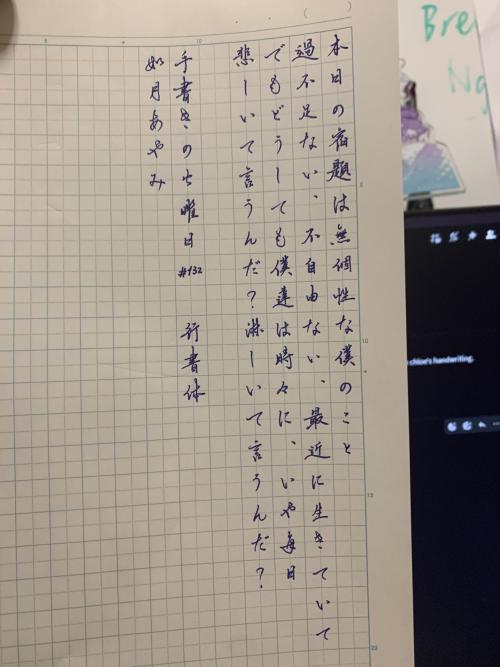 本日の宿題は無個性な僕のこと
過不足ない、不自由ない、最近に生きていて
でもどうしても僕達は時々に、いや毎日
悲しいて言うんだ？淋しいて言うんだ？
手書きの火曜日 #132 行書体
如月あやみ
Bre
Ng
chloe's handwriting.